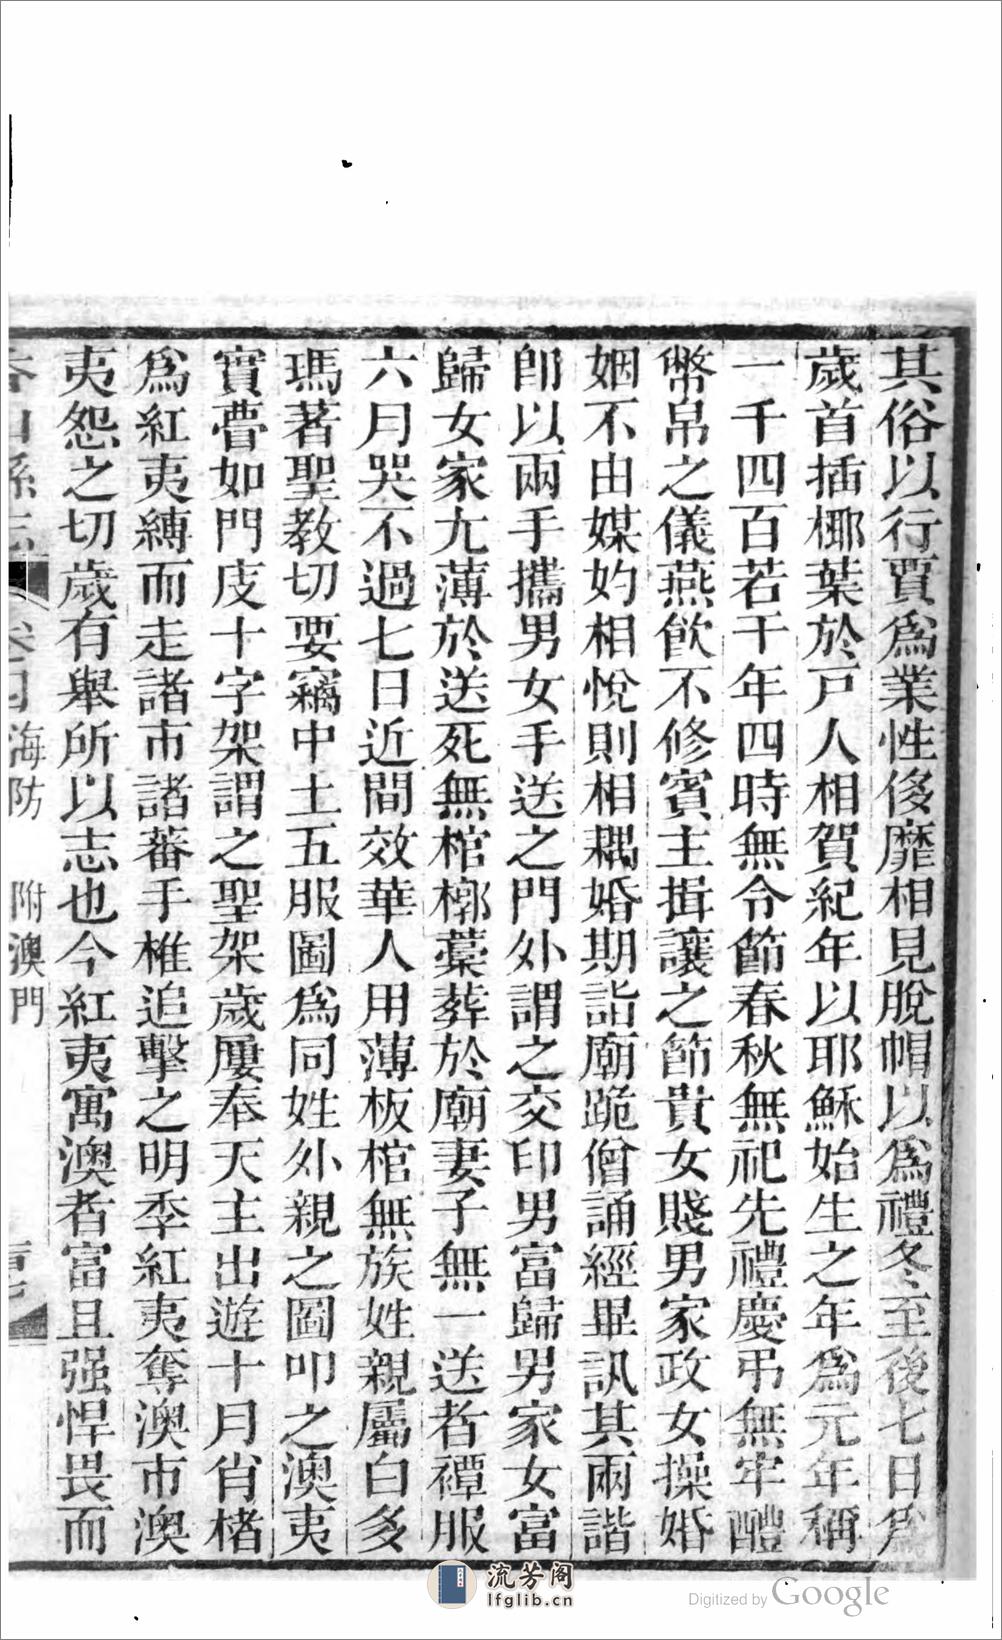 其俗以行賈爲業性侈靡相見脫帽以爲禮冬至後七日爲
歲首插椰葉於戸人相賀紀年以耶穌始生之年爲元年稱
一千四百若干年四時無令節春秋無祀先禮慶弔無牢醴
幣帛之儀燕飮不修賓主揖讓之節貴女賤男家政女操婚
姻不由媒妁相悅則相耦婚期詣廟跪僧誦經畢訊其兩諧
卽以兩手攜男女手送之門外謂之交印男富歸男家女富
歸女家尢薄於送死無棺槨藁葬於廟妻子無一送者禫服
六月哭不過七日近間效華人用薄板棺無族姓親屬白多
瑪著聖教切要竊中土五服圖爲同姓外親之圖叩之澳夷
實瞢如門皮十字架謂之聖架歲屢奉天主出遊十月肖楮
爲紅夷縛而走諸市諸蕃手椎追擊之明季紅夷奪澳市澳
夷怨之切歲有舉所以志也今紅夷寓澳者富且强悍畏而
香山縣志 卷四 海防 附澳門
流芳阁
lfglib.cn
Digitized by Google